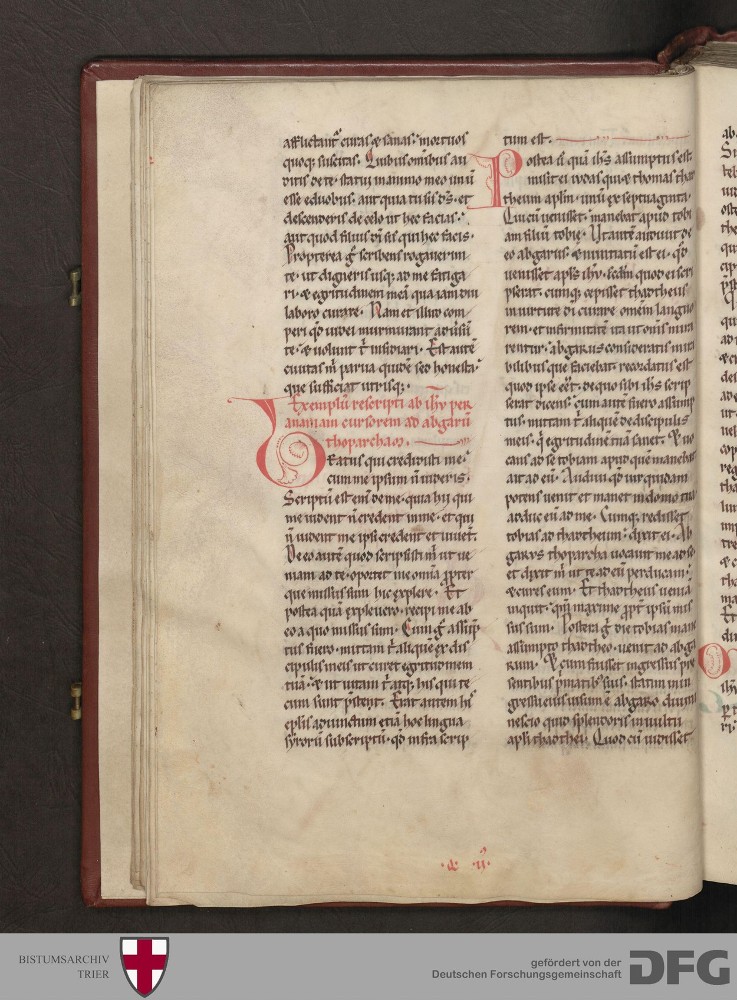 afflictant᷑ curas ⁊ sanas. mortuos
quoq; suscitas. Quibus omībus au
ditis de te. statui in animo meo unū
esse e duobus. aut quia tu sis d̄s. et
descenderis de celo ut hec facias.
aut quod filius dī sis qui hec facis.
Propterea g̊ scribens rogauerim
te. ut digneris usq; ad me fatiga
ri. ⁊ egritudinem meā qua iam diu
laboro curare. Nam et illud com
peri qd̄ iudei murmurant aduersū
te. ⁊ uolunt t̄ insidiari. Est autē
ciuitas m̄ parua quidē sed honesta.
que sufficiat utrisq;.
Exemplū rescripti ab ihū per
ananiam cursorem ad abgarū
thoparcham.
Beatus qui credidisti me.
cum me ipsum n̄ uideris.
Scriptū est enī de me. quia hii qui
me uident n̄ credent in me. et qui
n̄ uident me ipsi credent et uiuent.
De eo autē quod scripsisti m̄ ut ue
niam ad te. oportet me omīa propter
que missus sum hic explere. Et
postea quā expleuero. recipi me ab
eo a quo missus sum. Cum g̊ assūp
tus fuero. mittam t̄ aliquē ex dis
cipulis meis ut curet egritudinem
tuā. ⁊ ut uitam t̄ atq; his qui te
cum sunt p̄stent. Erat autem his
ep̄lis adiunctum etiā hoc lingua
syrorū subscriptū. qd̄ infra scrip
tum est.
Postea n̄ quā ihs̄ assumptus est
misit ei iudas qui ⁊ thomas thad
theum ap̄lm. unū ex septuaginta.
Qui cū uenisset. manebat apud tobi
am filiū tobie. Ut autē audiuit de
eo abgarus ⁊ nuntiatū est ei. qd̄
uenisset ap̄ls ihū. scdm quod ei scri
pserat. cumq; cepisset thadtheus
in uirtute di curare omēm languo
rem. et infirmitatē ita ut om̄s mira
rentur. abgarus consideratis mira
bilibus que faciebat. recordatus est
quod ipse eēt. de quo sibi ihs̄ scrip
serat dicens. cum autē fuero assūmp
tus. mittam t̄ aliquē de discipulis
meis. q̄ egritudinē tuā sanet.
cans ad se tobiam apud quē manebat
ait ad eū. Audiui qd̄ uir quidam
potens uenit et manet in domo tua
adduc eū ad me. Cumq; redisset
tobias ad thadtheum. dixit ei. Ab
garus thoparcha uocauit me ad se
et dixit m̄ ut te ad eū perducam.
⁊ cures eum. Et thadtheus uenia
inquit. qm̄ maxime propt̄ ipsū mis
sus sum. Postera g̊ die tobias mane
assumpto thadtheo. uenit ad abga
rum. Et cum fuisset ingressus pre
sentibus primatib; suis. statim in in
gressu eius uisum ē abgaro diuini
nescio quid splendoris in uultu
ap̄li thadthei. Quod cū uidisset
BISTUMSARCHIV
TRIER
gefördert von der
Deutschen Forschungsgemeinschaft
DFG